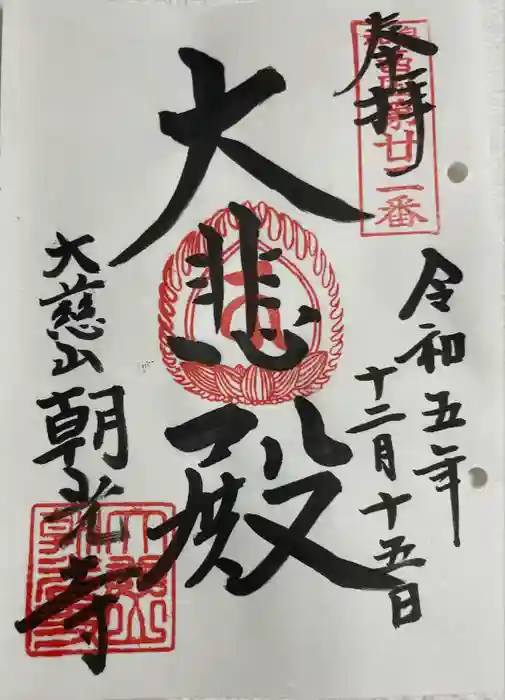 奉拝
第廿二番
令和五年
十二月十五日
大悲殿
大慈山
朝光寺